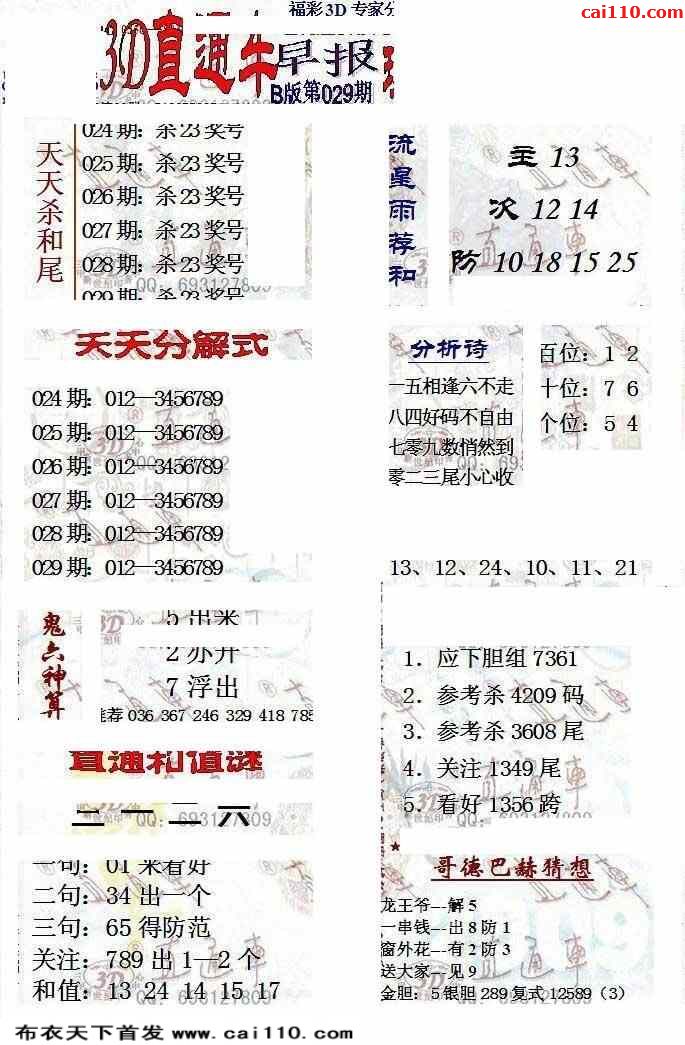 福彩3D 专家分
cai110.com
3D直通车早报
B版第029期
天天杀和尾
024 期: 杀 23 奖号
025 期: 杀 23 奖号
026 期: 杀 23 奖号
027 期: 杀 23 奖号
028 期: 杀 23 奖号
029 期: 杀 23 奖号
QQ: 693127809
流星雨荐和
主 13
次 12 14
防 10 18 15 25
直通车
天天分解式
024 期: 012—3456789
025 期: 012—3456789
026 期: 012—3456789
027 期: 012—3456789
028 期: 012—3456789
029 期: 012—3456789
分析诗
一五相逢六不走
八四好码不自由
七零九数悄然到
零二三尾小心收
百位: 1 2
十位: 7 6
个位: 5 4
13、12、24、10、11、21
鬼六神算
5 出来
2 办升
7 浮出
推荐 036 367 246 329 418 785
1. 应下胆组 7361
2. 参考杀 4209 码
3. 参考杀 3608 尾
4. 关注 1349 尾
5. 看好 1356 跨
直通和值谜
二一二六
QQ: 693127809
一句: 01 来看好
二句: 34 出一个
三句: 65 得防范
关注: 789 出 1—2 个
和值: 13 24 14 15 17
★
哥德巴赫猜想
龙王爷---解 5
一串钱---出 8 防 1
窗外花---有 2 防 3
送大家---见 9
金胆: 5 银胆 289 复式 12589（3）
布衣天下首发 www.cai110.com